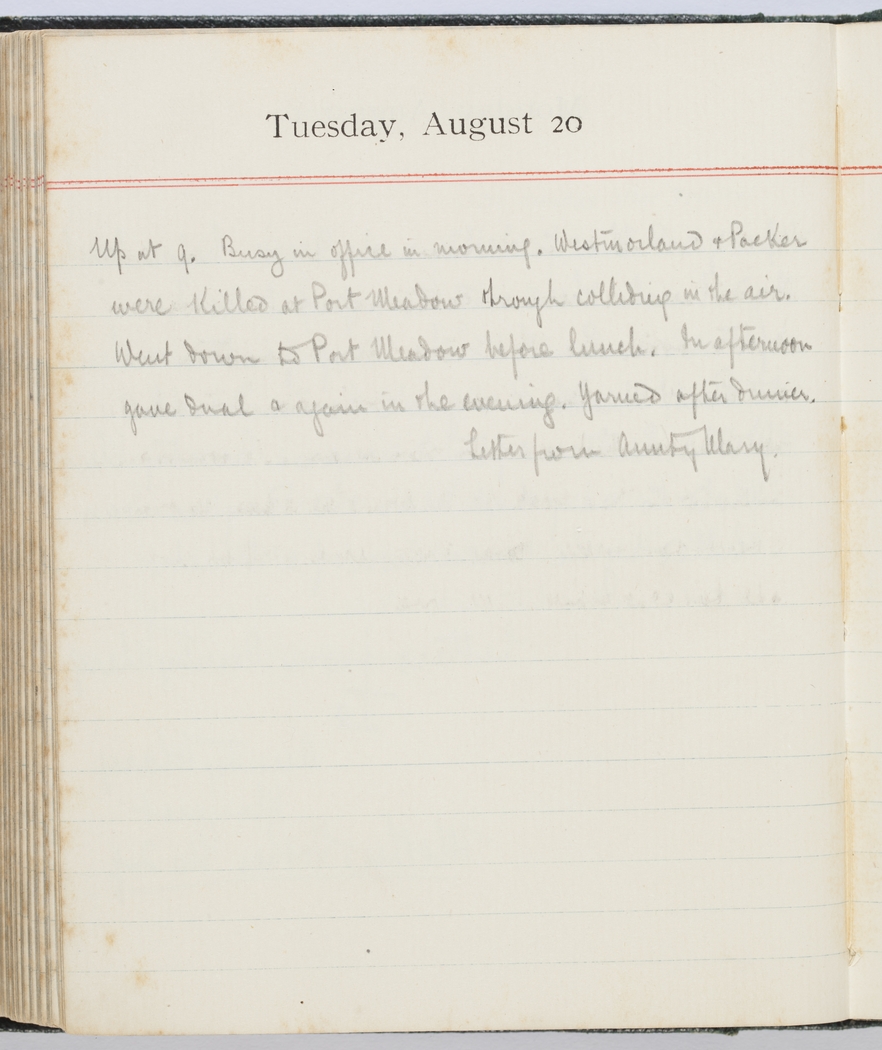 Tuesday, August 20
Up at 9. Busy in office in morning. Westmorland & Packer
were killed at Port Meadow through colliding in the air.
Went down to Port Meadow before lunch. In afternoon
gave dual & again in the evening. Yarned after dinner.
Letter from Aunty Mary.